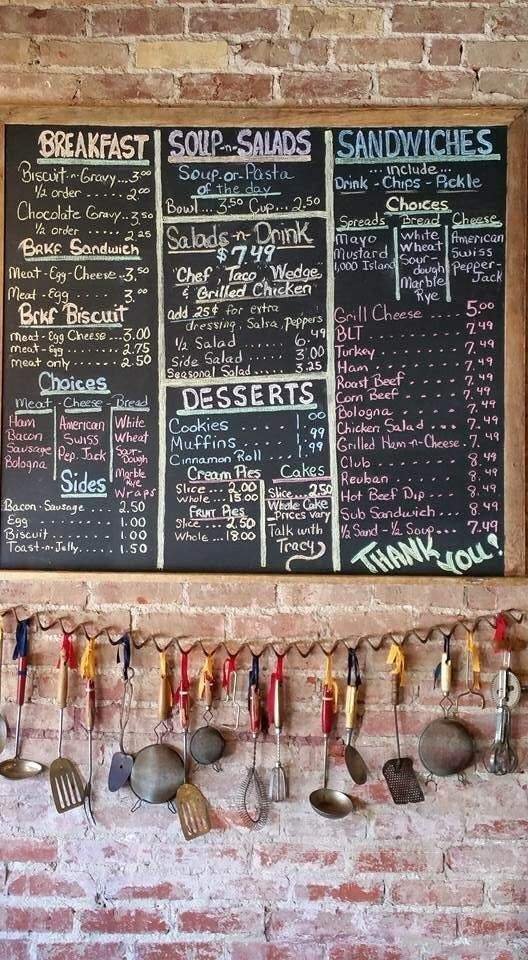 BREAKFAST
Biscuit-n-Gravy...3.00
1/2 order.....2.00
Chocolate Gravy..3.50
1/2 order....2.25
Brkf Sandwich
Meat-Egg-Cheese..3.50
Meat-Egg....3.00
Brkf Biscuit
Meat-Egg Cheese...3.00
meat-Egg........2.75
meat only......2.50
Choices
Meat-Cheese-Bread
Ham American White
Bacon Swiss Wheat
Sausage Pep. Jack Sour-Dough
Bologna Marble Rye
Wraps
Sides
Bacon-Sausage....2.50
Egg.........1.00
Biscuit.......1.00
Toast-n-Jelly.....1.50
SOUP-n-SALADS
Soup-or-Pasta
of the day
Bowl...3.50 Cup...2.50
Salads-n-Drink
$7.49
Chef, Taco, Wedge,
& Grilled Chicken
add 25¢ for extra
dressing, Salsa, Peppers
1/2 Salad......6.49
Side Salad.....3.00
Seasonal Salad.....3.25
DESSERTS
Cookies.....1.00
Muffins.....1.99
Cinnamon Roll...1.99
Cream Pies
Slice...2.00
Whole...15.00
FRUIT PIES
Slice....2.50
Whole...18.00
Cakes
Slice..2.50
Whole Cake
Prices vary
Talk with
Tracy
SANDWICHES
...include...
Drink-Chips-Pickle
Choices
Spreads Bread Cheese
Mayo White American
Mustard Wheat Swiss
1,000 Island Sour-dough Pepper-Jack
Marble Rye
Grill Cheese.....5.00
BLT........7.49
Turkey.......7.49
Ham........7.49
Roast Beef.....7.49
Corn Beef.....7.49
Bologna......7.49
Chicken Salad....7.49
Grilled Ham-n-Cheese.7.49
Club........8.49
Reuban......8.49
Hot Beef Dip....8.49
Sub Sandwich....8.49
1/2 Sand-1/2 Soup...7.49
THANK YOU!